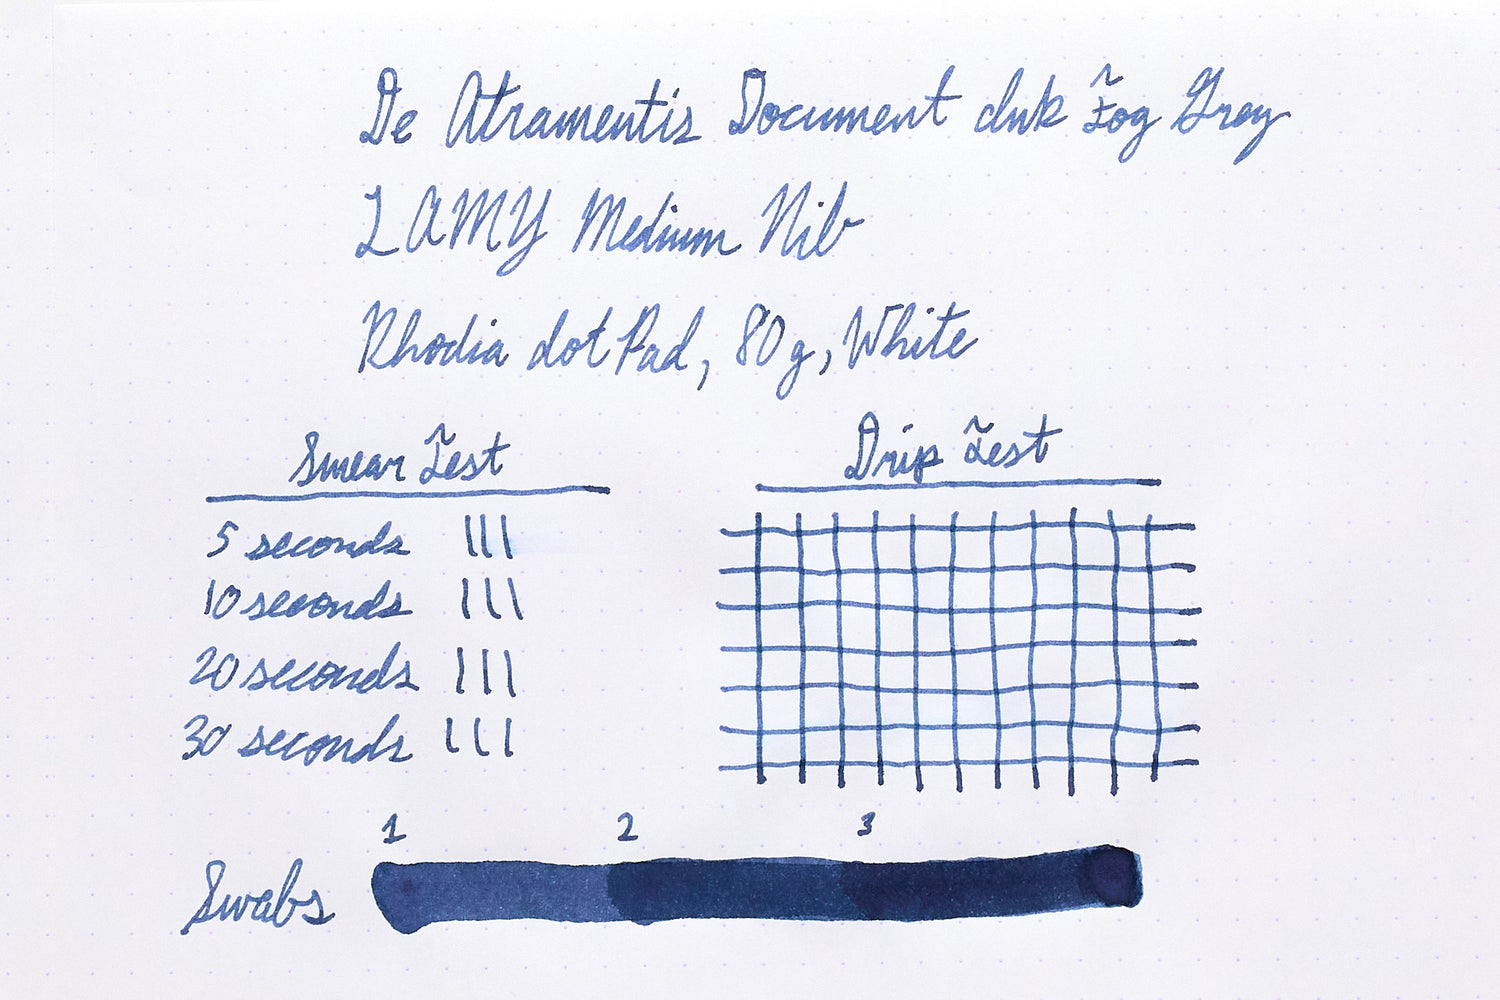 De Atramentis Document Ink Fog Grey
LAMY Medium Nib
Rhodia dot Pad, 80g, White
Smear Test
5 seconds
10 seconds
20 seconds
30 seconds
Drip Test
1 2 3
Swabs